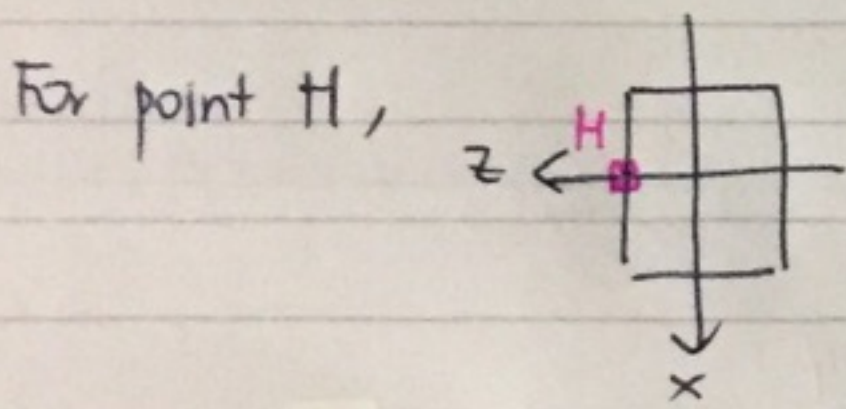 For point H,
H
Z
x